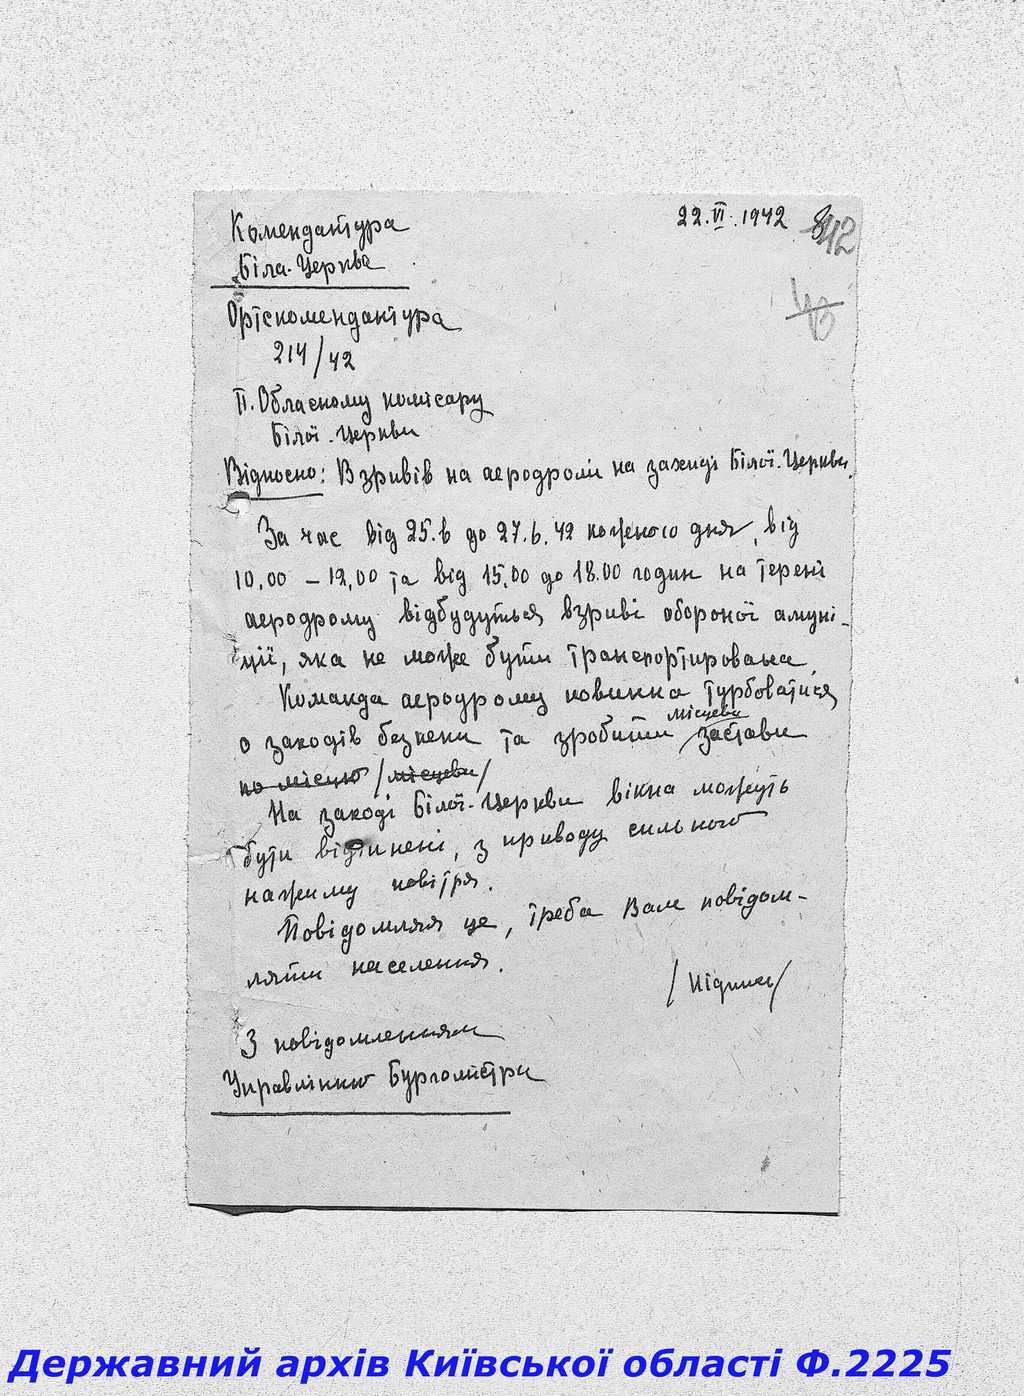 22.VI.1942
42
Комендантура
Біла-Церква
Ортскомендантура
214/42
П. Обласному комісару
Білої-Церкви
Відносно: Взривів на аеродромі на заході Білої-Церкви.
За час від 25.6 до 27.6.42 кожного дня, від
10,00 – 12,00 та від 15,00 до 18.00 годин на терені
аеродрому відбудуться взриві обороної амуні-
ції, яка не може бути транспортирована.
Команда аеродрому повинна турбоватися
місцеви
о заходів безпеки та зробити застави
по місцю /місцеви/
На заході Білої-Церкви вікна можуть
бути відчинені, з приводу сильного
нажиму повітря.
Повідомляя це, треба Вам повідом-
ляти населення.
/Підписи/
З повідомленням
Управлінню Бургомістри
Державний архів Київської області Ф.2225